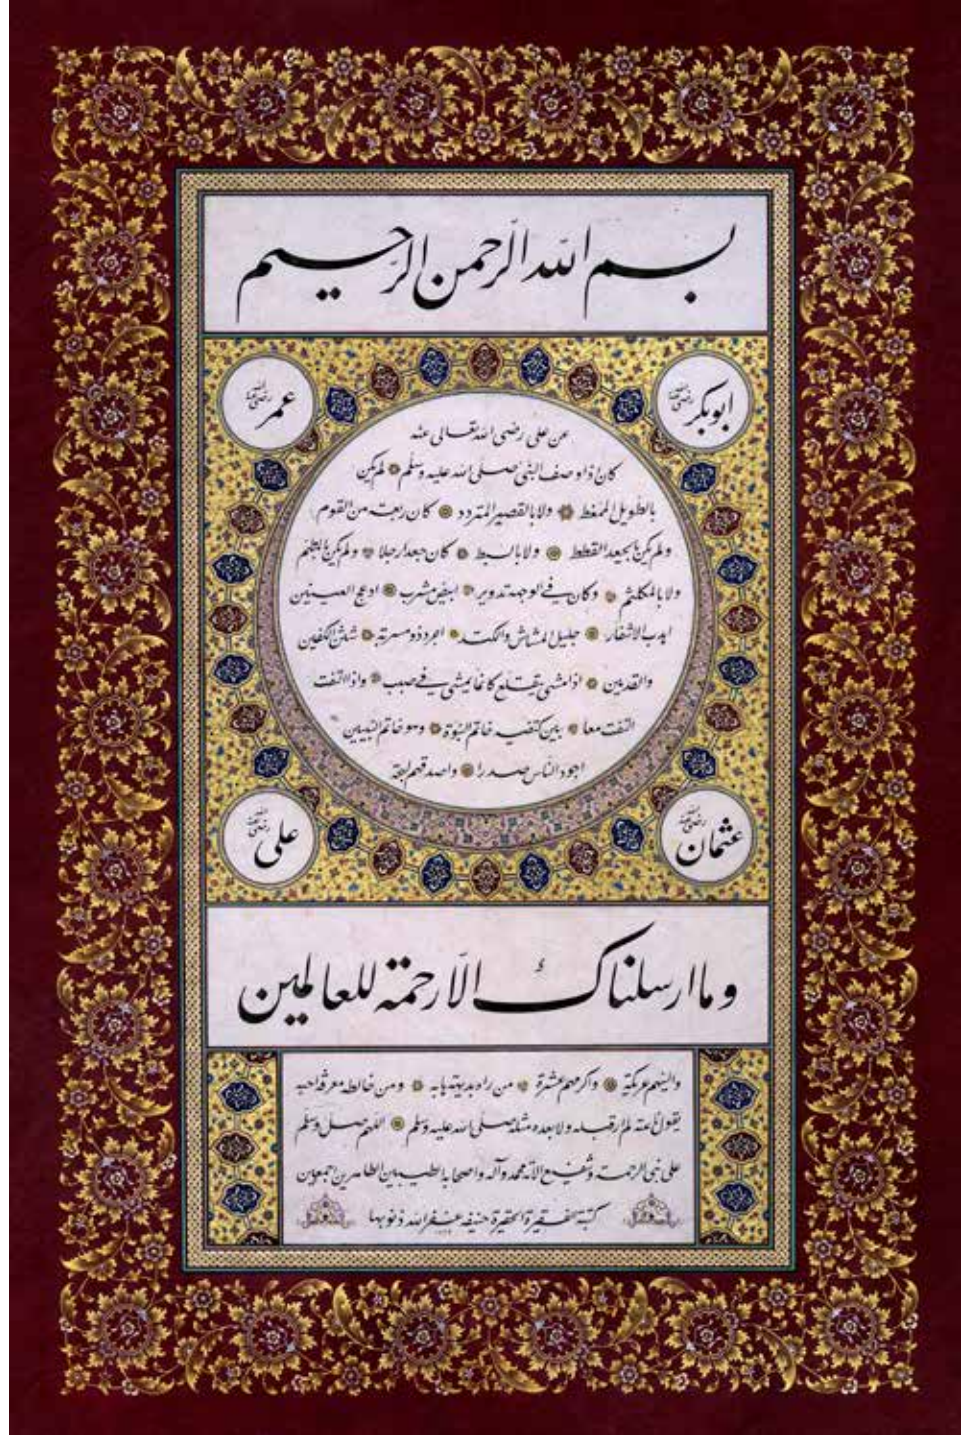 بسم الله الرحمن الرحيم
ابوبكر رضی الله عنه
عمر رضی الله عنه
عن علی رضی الله تعالی عنه
كان اذا وصف النبی صلی الله علیه وسلم لم یكن
بالطویل الممغط ولا بالقصیر المتردد كان ربعة من القوم
ولم یكن بالجعد القطط ولا بالسبط كان جعدا رجلا ولم یكن بالمطهم
ولا بالمكلثم وكان فی الوجه تدویر ابیض مشرب ادعج العینین
اهدب الاشفار جلیل المشاش والكتد اجرد ذو مسربة شثن الكفین
والقدمین اذا مشی یتقلع كانما یمشی فی صبب واذا التفت
التفت معا بین كتفیه خاتم النبوة وهو خاتم النبیین
اجود الناس صدرا واصدقهم لهجة
عثمان رضی الله عنه
علی رضی الله عنه
وما ارسلناك الا رحمة للعالمین
والینهم عریكة واكرمهم عشرة من راه بدیهة هابه ومن خالطه معرفة احبه
یقول ناعته لم ار قبله ولا بعده مثله صلی الله علیه وسلم اللهم صل وسلم
علی نبی الرحمة وشفیع الامة محمد وآله واصحابه الطیبین الطاهرین اجمعین
كتبته الفقیرة الحقیرة حنیفه غفر الله ذنوبها